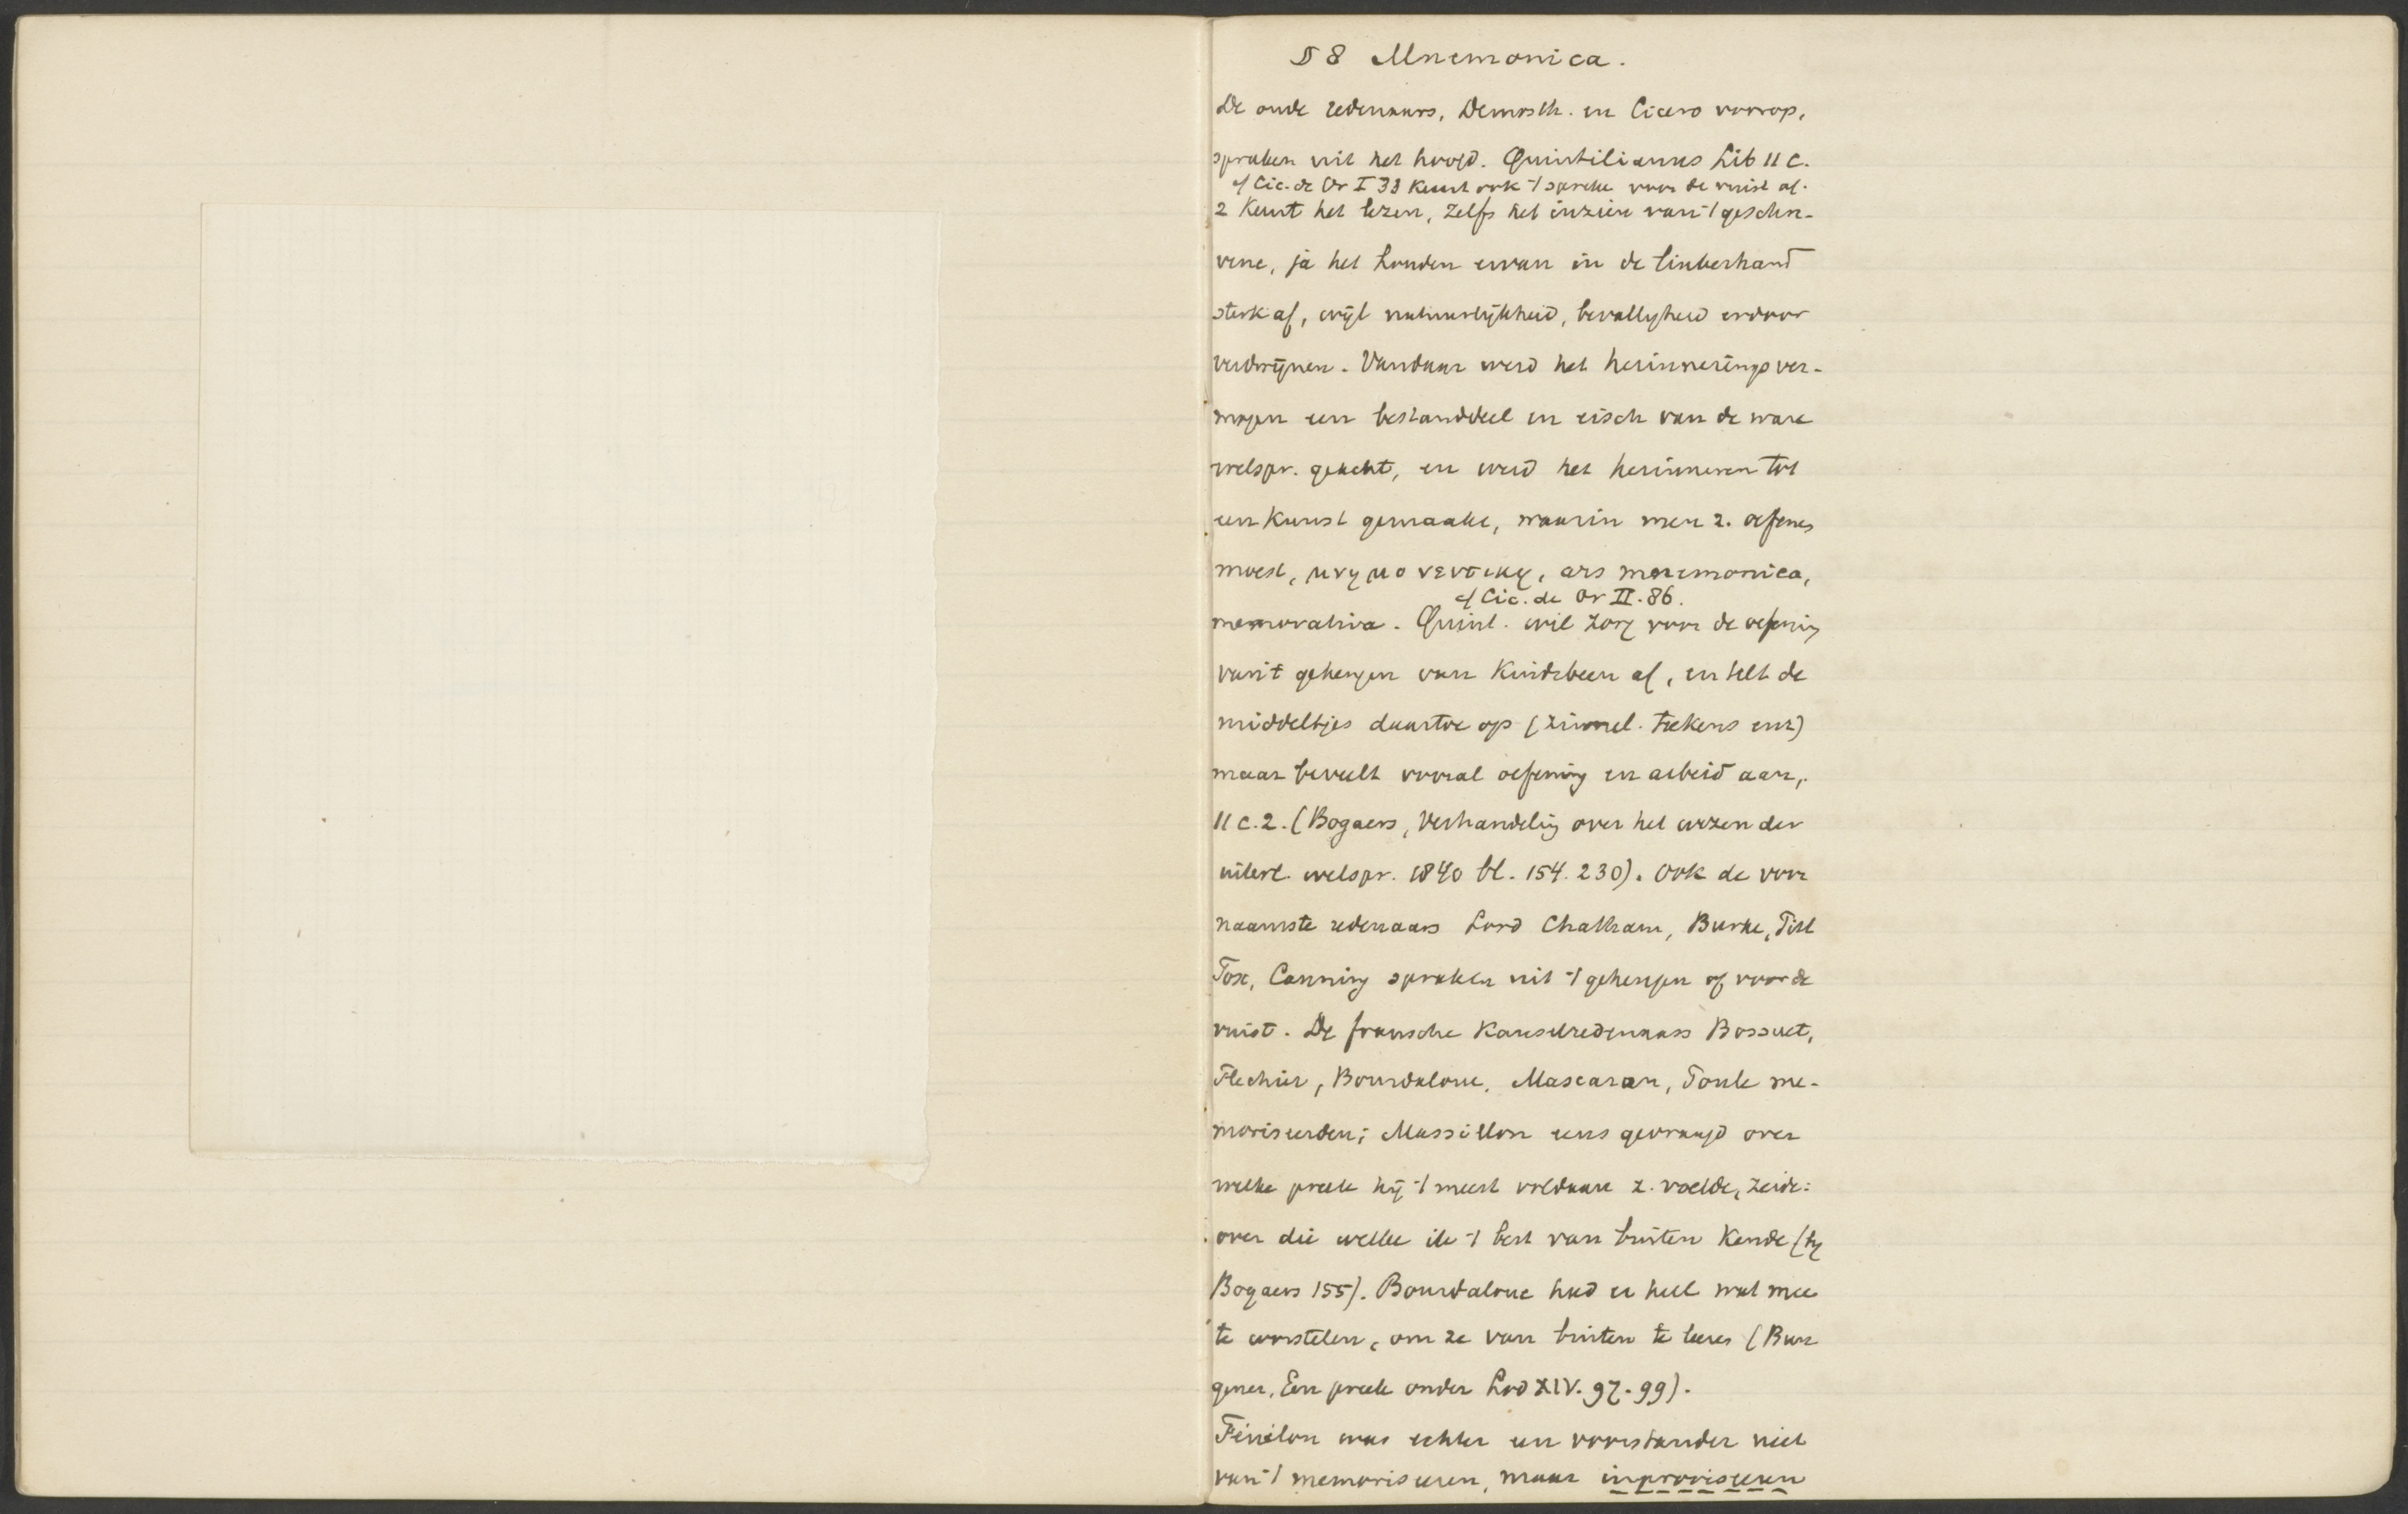 § 8 Mnemonica.
De oude redenaars, Demosth. en Cicero voorop,
spraken uit het hoofd. Quintilianus Lib 11 c.
cf Cic. de Or I 33 keurt ook 't spreke voor de vuist af.
2 Keurt het lezen, zelfs het inzien van 't geschre-
vene, ja het houden ervan in de linkerhand
sterk af, wijl natuurlijkheid, bevalligheid erdoor
verdwijnen. Vandaar werd het herinneringsver-
mogen een bestanddeel en eisch van de ware
welspr. geacht, en werd het herinneren tot
een kunst gemaakt, waarin men z. oefenen
moest, μνημονευτικη, ars mnemonica,
cf Cic. de Or II. 86.
memorativa. Quint. wil zorg voor de oefening
van 't geheugen van kindsbeen af, en telt de
middeltjes daartoe op (zinnel. teekens enz)
maar beveelt vooral oefening en arbeid aan,
11 c. 2. (Bogaers, Verhandeling over het wezen der
uiterl. welspr. 1840 bl. 154. 230). Ook de voor
naamste redenaars Lord Chatham, Burke, Pitt
Fox, Canning spraken uit 't geheugen of voor de
vuist. De fransche Kanselredenaars Bossuet,
Flechier, Bourdaloue, Mascaran, Toule me-
moriseerden; Massillon eens gevraagd over
welke preek hij 't meest voldaan z. voelde, zeide:
over die welke ik 't best van buiten kende (bij
Bogaers 155). Bourdaloue had er heel wat mee
te worstelen, om ze van buiten te leeren (Bun
gener, Een preek onder Lod XIV. 97-99).
Fénélon was echter een voorstander niet
van 't memoriseeren, maar improviseeren